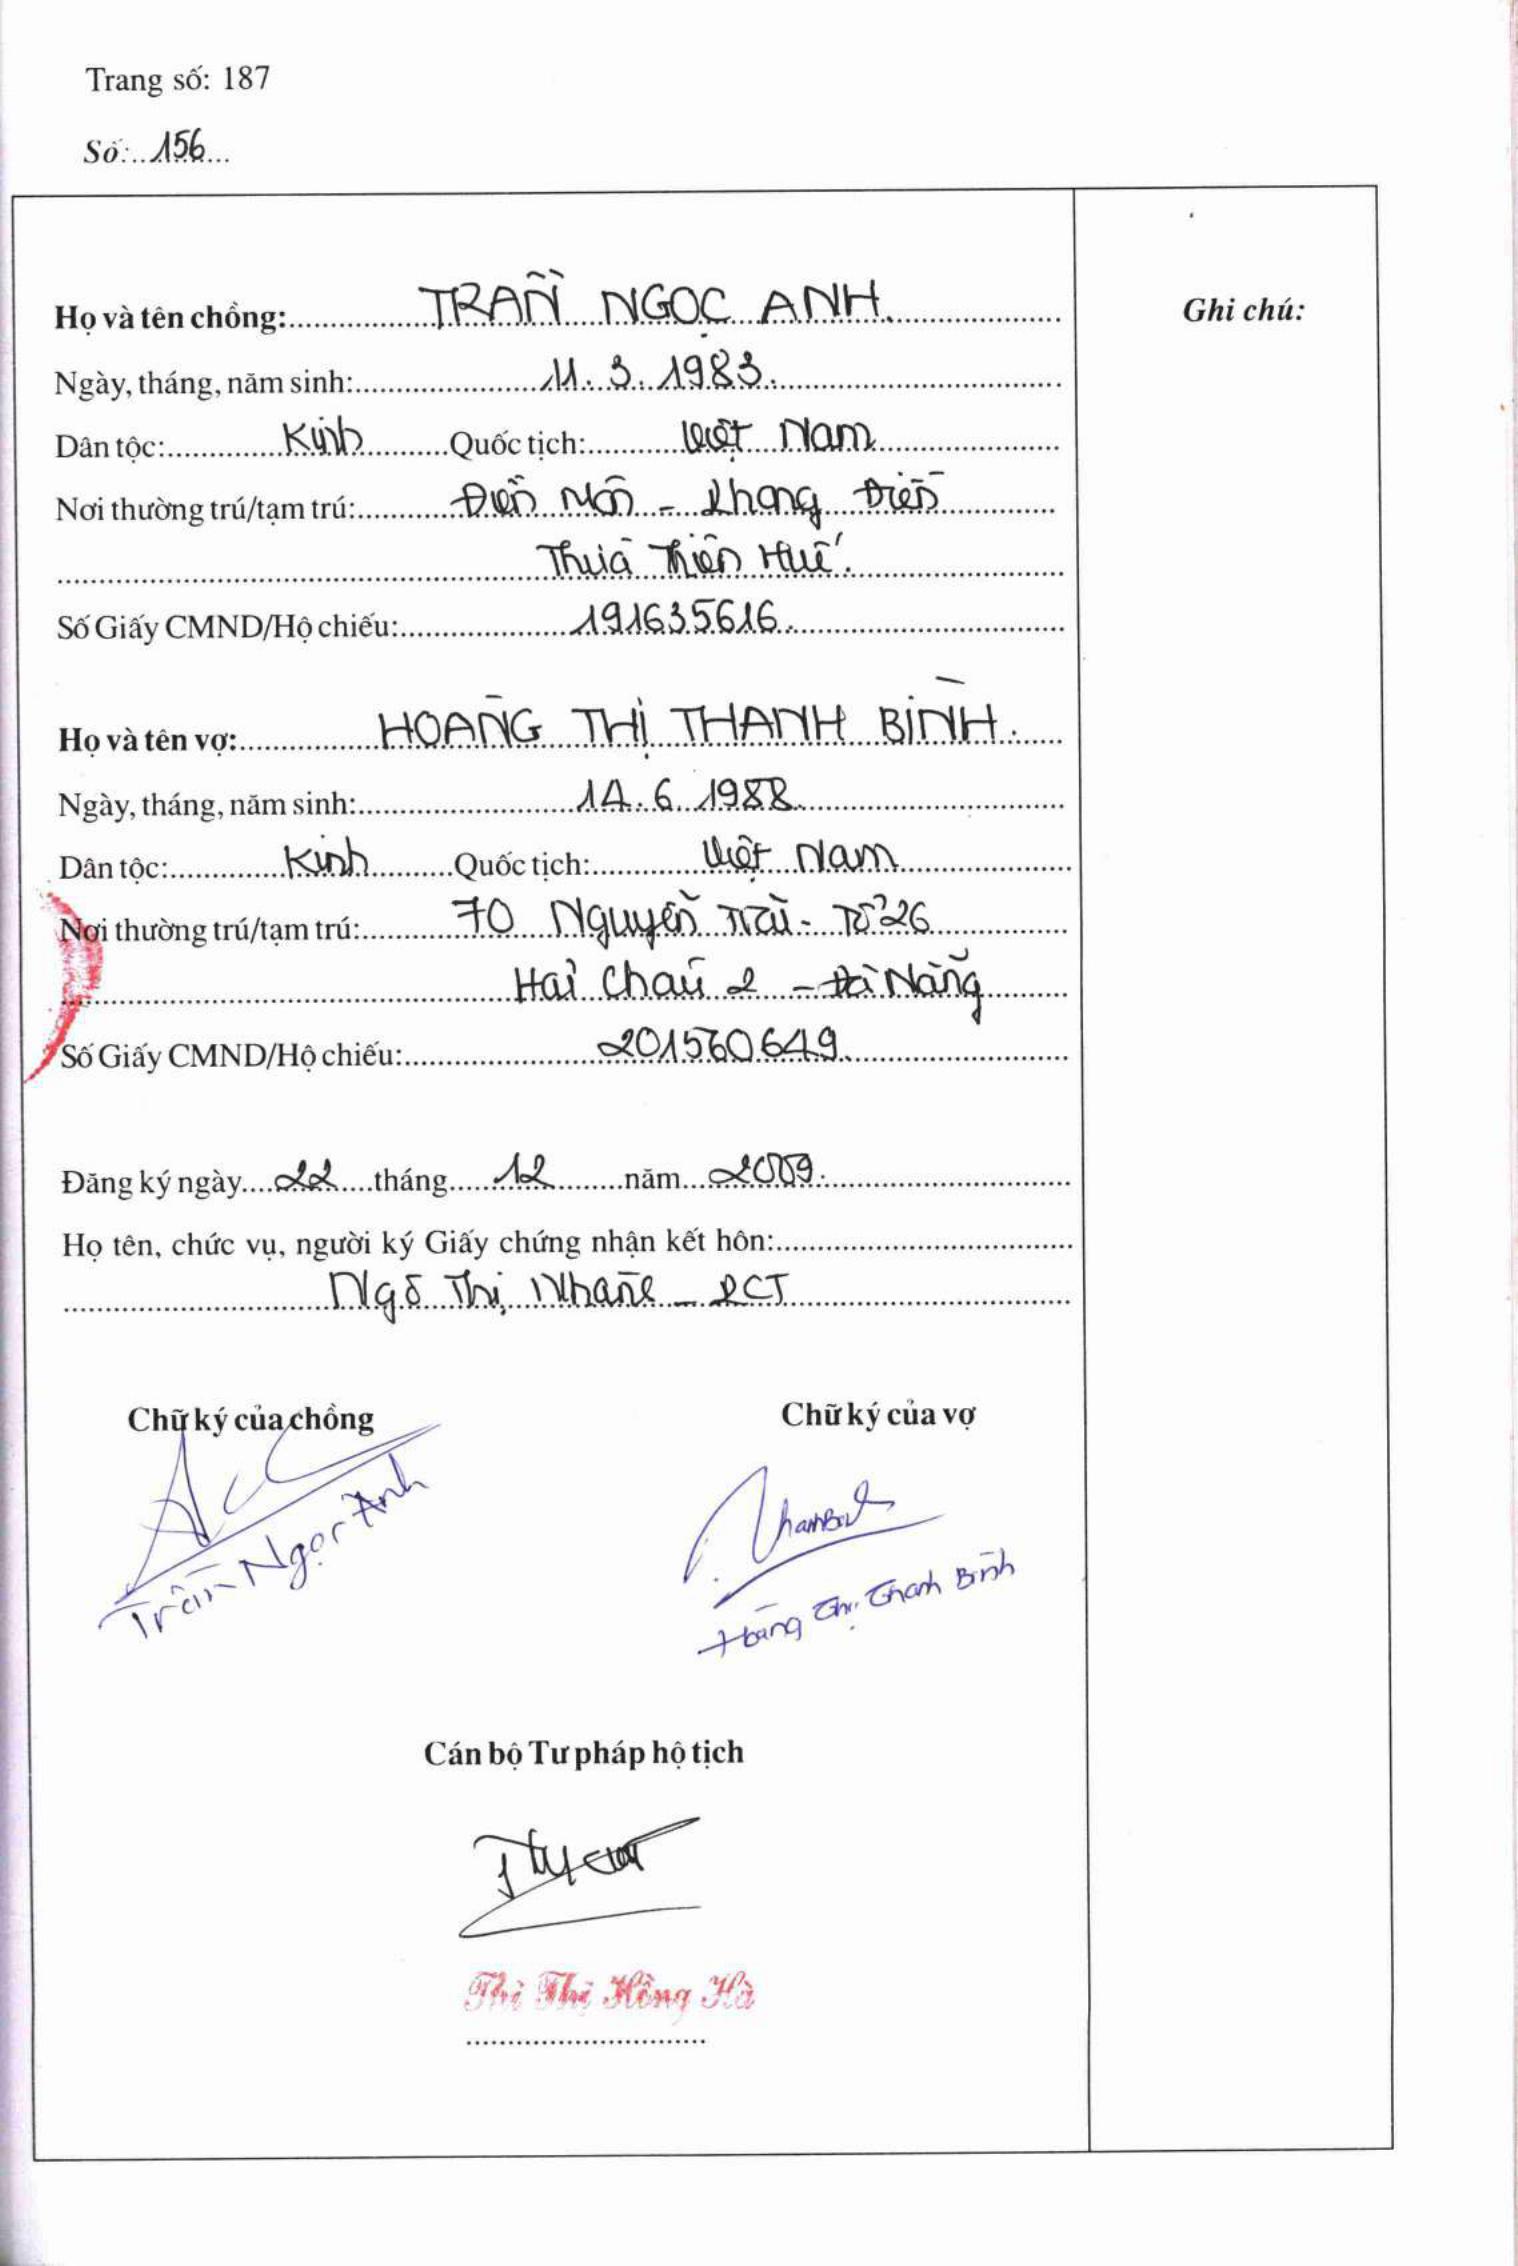 Trang số: 187
Số: 156
Họ và tên chồng: TRẦN NGỌC ANH.
Ghi chú:
Ngày, tháng, năm sinh: 11. 3. 1983.
Dân tộc: Kinh Quốc tịch: Việt Nam
Nơi thường trú/tạm trú: Điền Môn - Phong Điền
Thừa Thiên Huế.
Số Giấy CMND/Hộ chiếu: 191635616.
Họ và tên vợ: HOÀNG THỊ THANH BÌNH.
Ngày, tháng, năm sinh: 14. 6. 1988
Dân tộc: Kinh Quốc tịch: Việt Nam
Nơi thường trú/tạm trú: 70 Nguyễn Trãi - Tổ 26
Hải Châu 2 - Đà Nẵng
Số Giấy CMND/Hộ chiếu: 201560649.
Đăng ký ngày 22 tháng 12 năm 2009.
Họ tên, chức vụ, người ký Giấy chứng nhận kết hôn:
Ngô Thị - PCT
Chữ ký của chồng Chữ ký của vợ
Trần Ngọc Anh
Hoàng Thị Thanh Bình
Cán bộ Tư pháp hộ tịch
Thị Hồng Hà